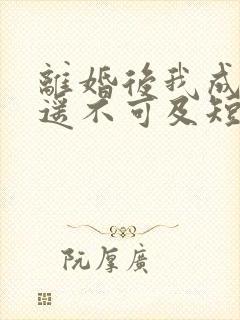 離婚後我成
遥不可及短
阮厚廣